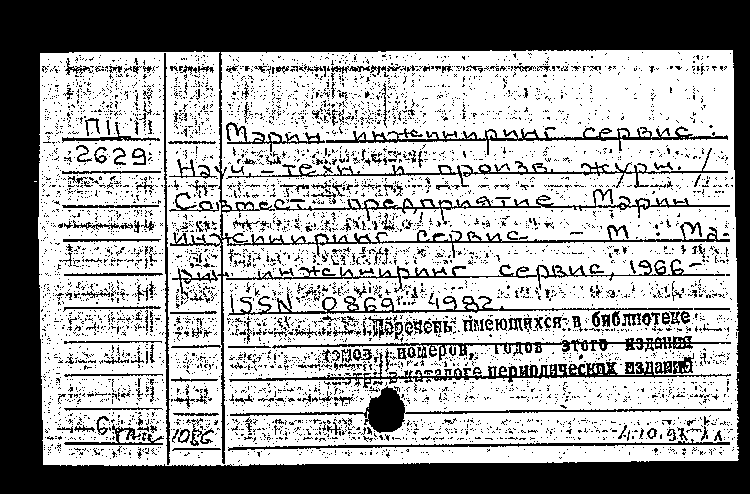 ПЦ
2629
Марин инжиниринг сервис :
Науч. – техн. и произв. журн. /
Совмест. предприятие „Марин
инжиниринг сервис. – М. : Ма-
рин инжиниринг сервис, 1966–
ISSN 0869-4982.
Перечень имеющихся в библиотеке
томов, номеров, годов этого издания
в каталоге периодических изданий
6
1086